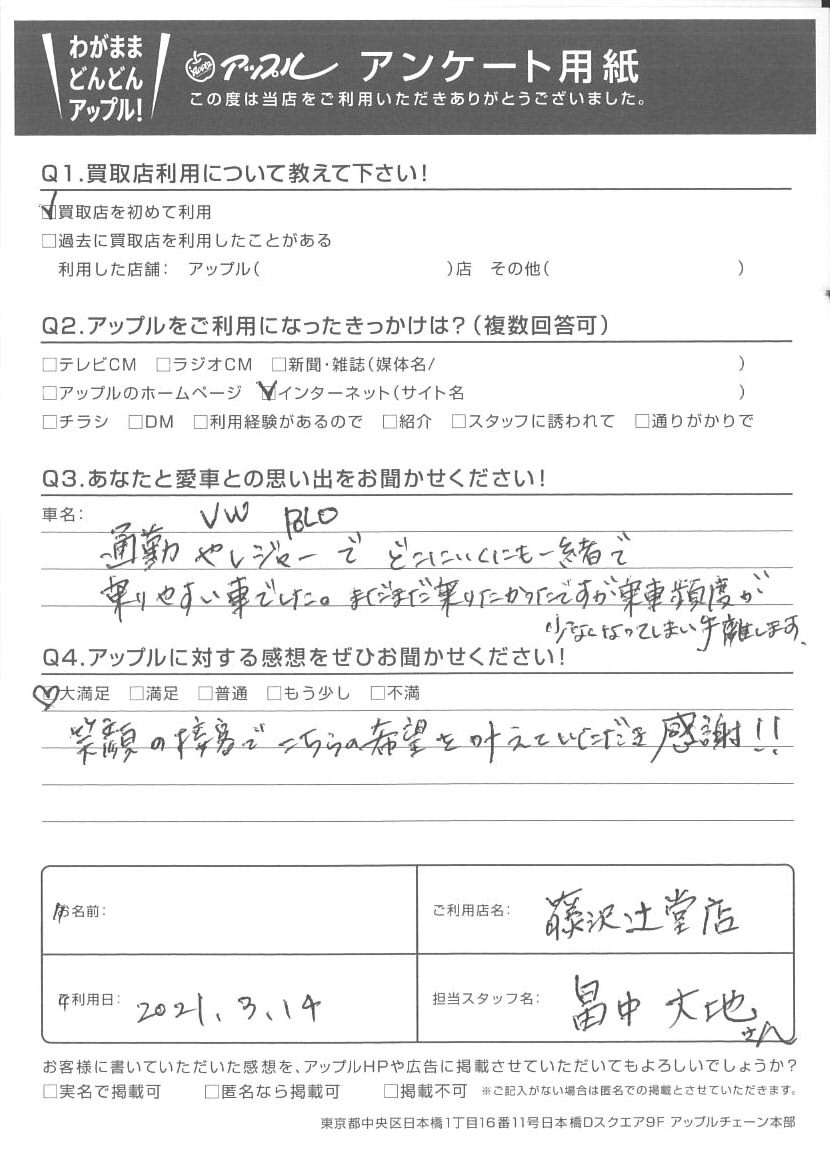 わがまま
どんどん
アップル!
アップル アンケート用紙
この度は当店をご利用いただきありがとうございました。
Q1.買取店利用について教えて下さい!
☑買取店を初めて利用
□過去に買取店を利用したことがある
利用した店舗: アップル( )店 その他( )
Q2.アップルをご利用になったきっかけは?(複数回答可)
□テレビCM □ラジオCM □新聞・雑誌(媒体名/ )
□アップルのホームページ ☑インターネット(サイト名 )
□チラシ □DM □利用経験があるので □紹介 □スタッフに誘われて □通りがかりで
Q3.あなたと愛車との思い出をお聞かせください!
車名: VW POLO
通勤やレジャーで どこにいくにも一緒で
乗りやすい車でした。まだまだ乗りたかったですが乗車頻度が
少なくなってしまい手離します。
Q4.アップルに対する感想をぜひお聞かせください!
♡大満足 □満足 □普通 □もう少し □不満
笑顔の接客でこちらの希望を叶えていただき感謝!!
お名前:
ご利用店名: 藤沢辻堂店
ご利用日: 2021.3.14
担当スタッフ名: 畠中 大地さん
お客様に書いていただいた感想を、アップルHPや広告に掲載させていただいてもよろしいでしょうか?
□実名で掲載可 □匿名なら掲載可 □掲載不可 ※ご記入がない場合は匿名での掲載とさせていただきます。
東京都中央区日本橋1丁目16番11号日本橋Dスクエア9F アップルチェーン本部